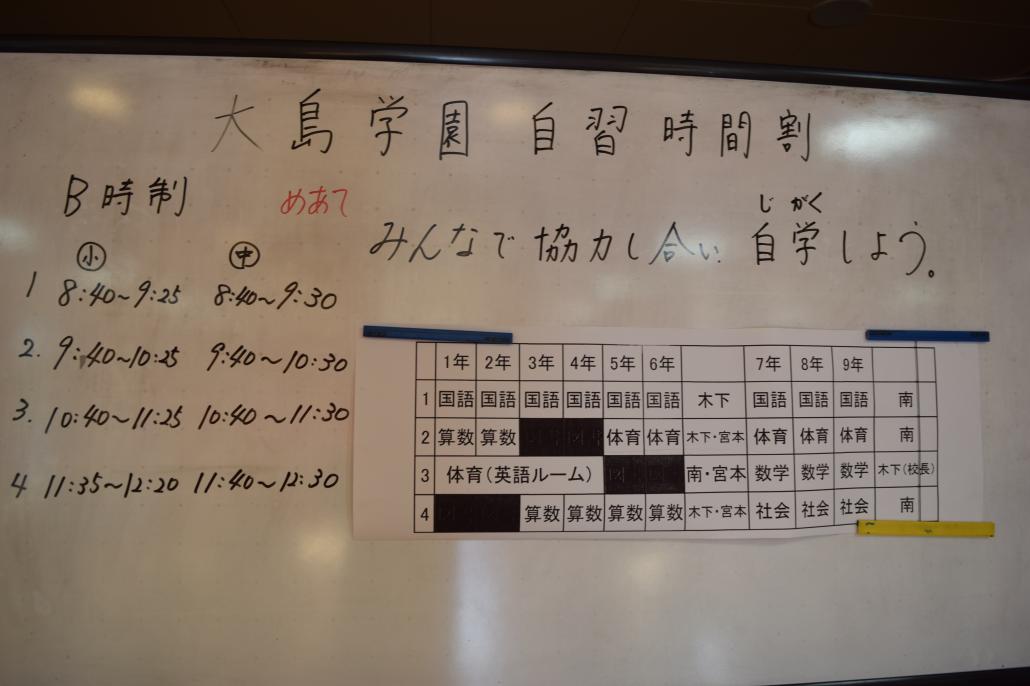 大島学園 自習時間割
B時制 めあて
じがく
みんなで協力し合い 自学しよう。
小 中
1 8:40~9:25 8:40~9:30
2. 9:40~10:25 9:40~10:30
3. 10:40~11:25 10:40~11:30
4 11:35~12:20 11:40~12:30
1年 2年 3年 4年 5年 6年 7年 8年 9年
1 国語 国語 国語 国語 国語 国語 木下 国語 国語 国語 南
2 算数 算数 体育 体育 木下・宮本 体育 体育 体育 南
3 体育(英語ルーム) 南・宮本 数学 数学 数学 木下(校長)
4 算数 算数 算数 算数 木下・宮本 社会 社会 社会 南